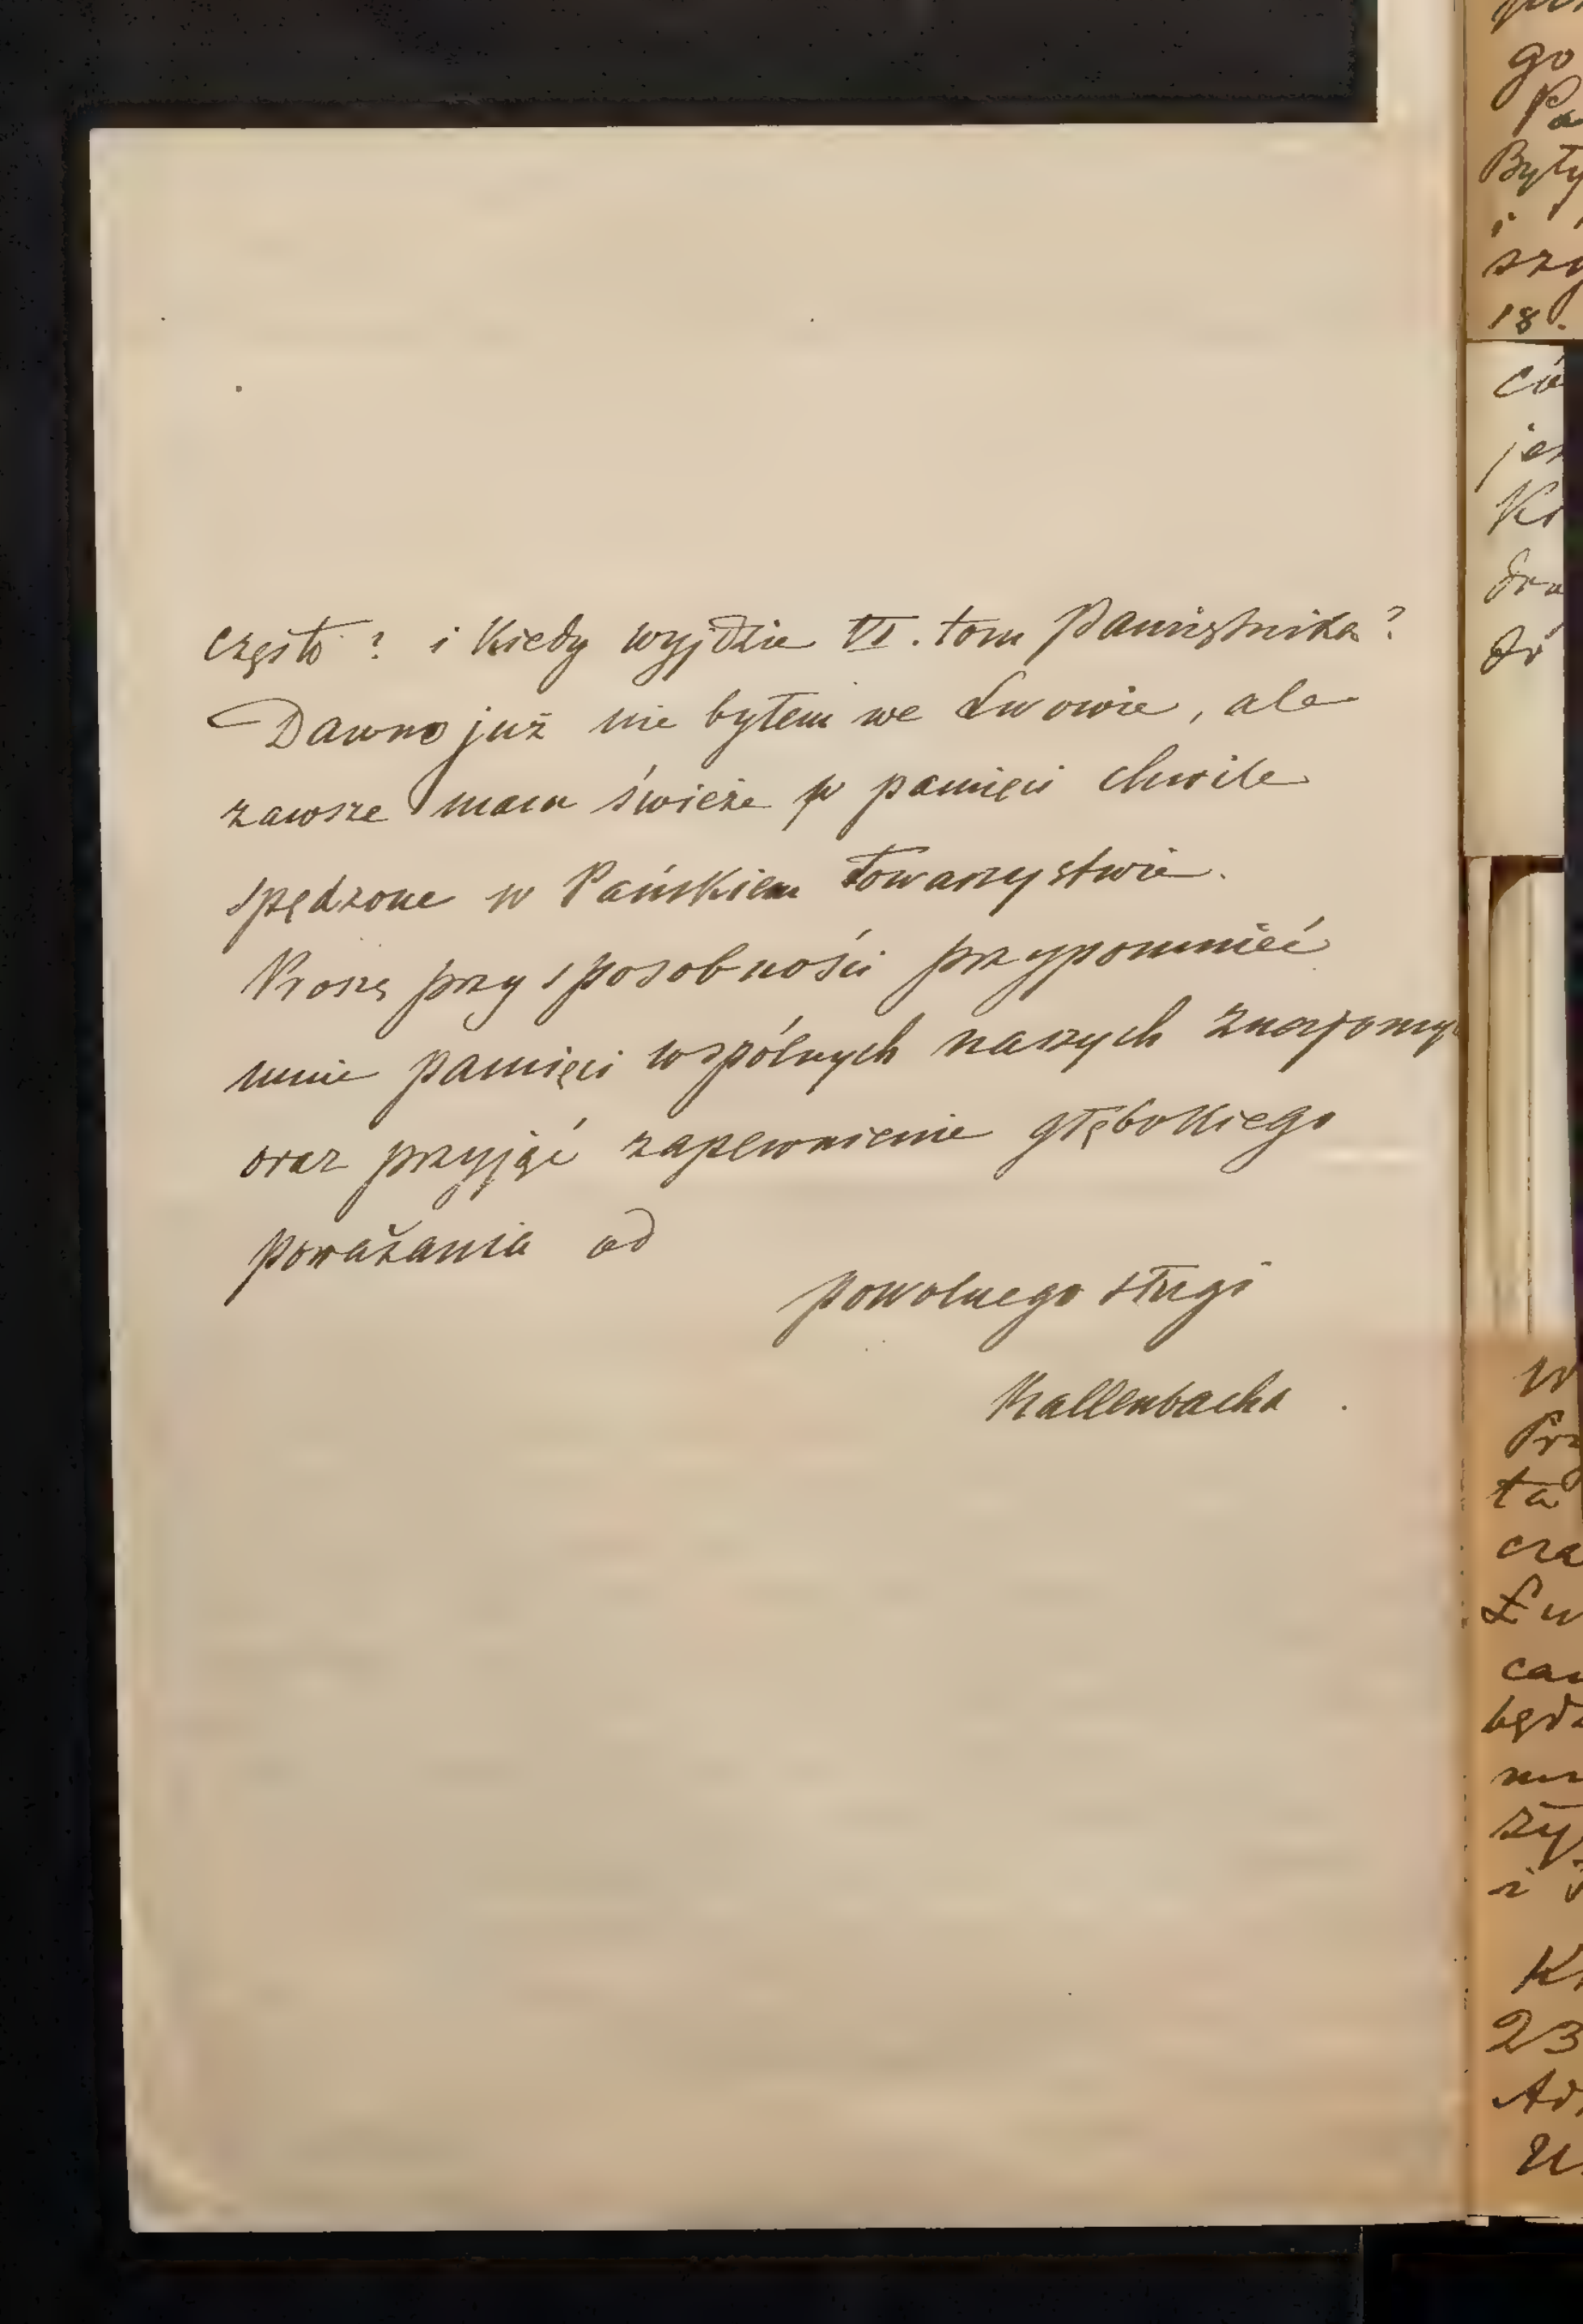 często? i kiedy wyjdzie VI. tom Pamiętnika?
Dawno już nie byłem we Lwowie, ale
zawsze mam świeże w pamięci chwile
spędzone w Pańskiem towarzystwie.
Proszę przy sposobności przypomnieć
mnie pamięci wspólnych naszych znajomy
oraz przyjąć zapewnienie głębokiego
poważania od
powolnego sługi
Kallenbacha
go
Pa
Były
i
szy
18.
jes
w
Prz
ta
cza
Lw
będz
i
23